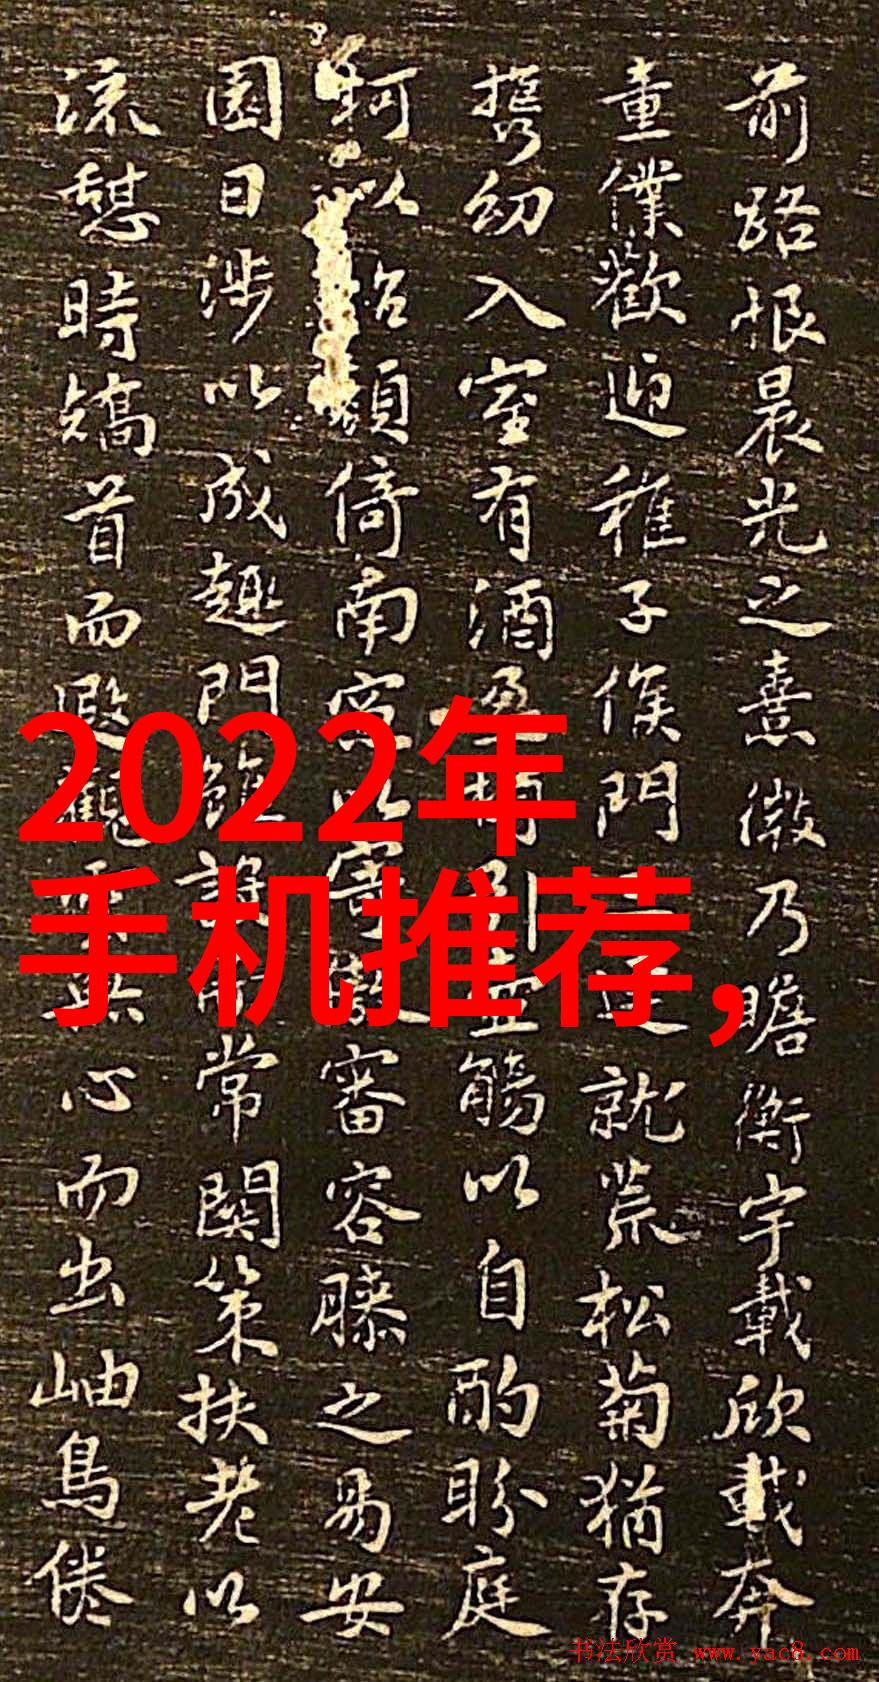 前路恨晨光之熹微乃瞻衡宇載欣載奔
童僕歡迎稚子候門逕就荒松菊猶存
携幼入室有酒盈引壺觴以自酌盼庭
柯以怡顏倚南窓以寄傲審容膝之易安
園日涉以成趣門雖設常關策扶老以
流憩時矯首而遐觀無心而出岫鳥倦
2022年
手机推荐,
书法欣赏 www.yac8.com